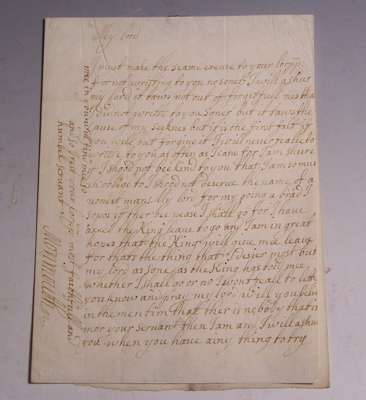 My lord
I must make the same excuse to your lordp
for not writing to you soner I will ashur
my lord it was not out of forgetfulness that
I did not write to you soner but it was the
cause of my seknes but it is the first falt if
you will but forgive it I will never
write to you as often as I can for I am shure
if I shood not be kind to you that I am so much
to I shood not deserve the name of a
honest man My lord for my going a brod I
if the Duc I shall go for I have
the King leave to go and I am in great
hopes that the King will give me leave
for thats the thing that I desier most but
my lord as sone as the King has tould me
whether I shall go or no I wont feall to lett
you know and pray my lord will you beleve
in the men tim that ther is nobody that is
mor your servant then I am and I will ashur
you when you have any thing to try
me in you will find me to
and humbel servant
Monmouth